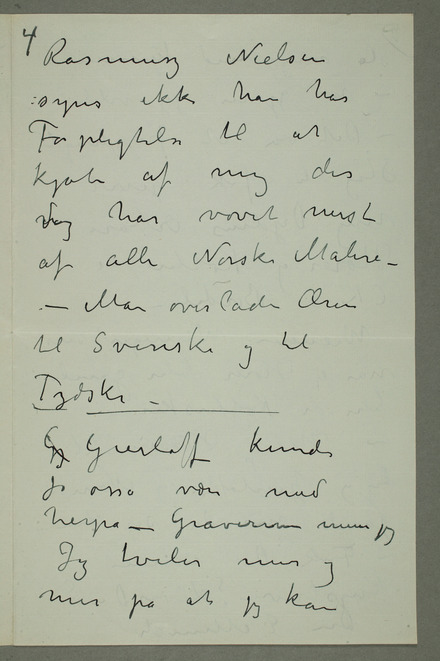 4
Rasmus Nielsen
synes ikke han har
Forpligtelse til at
kjøbe af mig der
har vovet mest
af alle Norske Malere –
– Man overlader Æren
til Svenske og til
Tydske –
Gierløff kunde
jo osså være med
herpa – Graverne mener jeg
Jeg tviler mer og
mer på at jeg kan